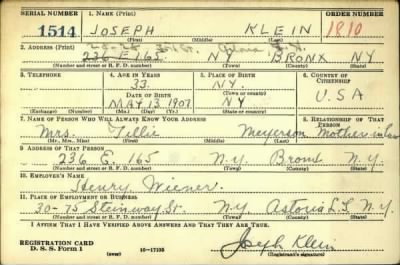 SERIAL NUMBER 1. NAME (Print) ORDER NUMBER
1514 JOSEPH KLEIN 1810
(First) (Middle) (Last)
2. ADDRESS (Print)
236 E 165 NY BRONX NY
(Number and street or R. F. D. number) (Town) (County) (State)
3. TELEPHONE 4. AGE IN YEARS 5. PLACE OF BIRTH 6. COUNTRY OF CITIZENSHIP
33 NY.
DATE OF BIRTH (Town or county)
MAY 13 1907 NY USA
(Exchange) (Number) (Mo.) (Day) (Yr.) (State or country)
7. NAME OF PERSON WHO WILL ALWAYS KNOW YOUR ADDRESS 8. RELATIONSHIP OF THAT PERSON
Mrs. Tillie Meyerson Mother in law
(Mr., Mrs., Miss) (First) (Middle) (Last)
9. ADDRESS OF THAT PERSON
236 E. 165 N.Y. Bronx N.Y.
(Number and street or R. F. D. number) (Town) (County) (State)
10. EMPLOYER'S NAME
Henry Wiener.
11. PLACE OF EMPLOYMENT OR BUSINESS
30-75 Steinway St. N.Y Astoria L.I. N.Y.
(Number and street or R. F. D. number) (Town) (County) (State)
I AFFIRM THAT I HAVE VERIFIED ABOVE ANSWERS AND THAT THEY ARE TRUE.
REGISTRATION CARD
D. S. S. Form 1 (over) 16-17105 Joseph Klein
(Registrant's signature)